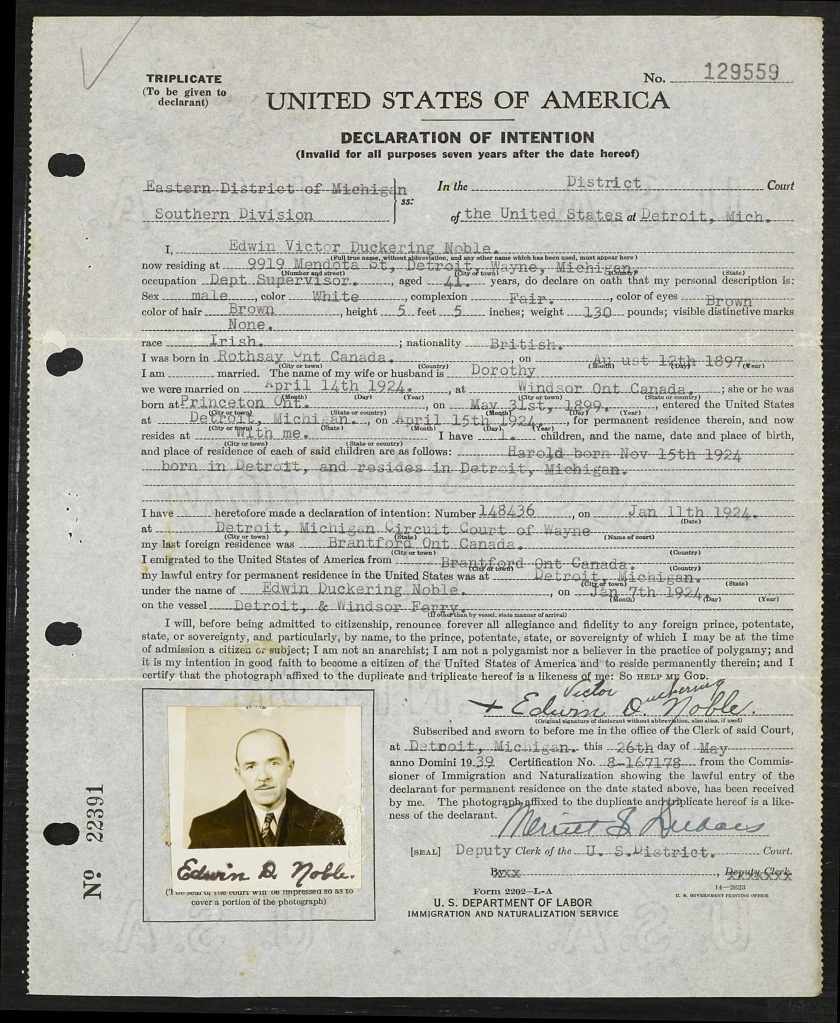 TRIPLICATE
(To be given to
declarant)
No. 129559
UNITED STATES OF AMERICA
DECLARATION OF INTENTION
(Invalid for all purposes seven years after the date hereof)
Eastern District of Michigan
Southern Division
ss:
In the District Court
of the United States at Detroit, Mich.
I, Edwin Victor Duckering Noble.
(Full true name, without abbreviation, and any other name which has been used, must appear here)
now residing at 9919 Mendota St, Detroit, Wayne, Michigan.
(Number and street) (City or town) (County) (State)
occupation Dept Supervisor. , aged 41. years, do declare on oath that my personal description is:
Sex male , color White , complexion Fair. , color of eyes Brown
color of hair Brown , height 5 feet 5 inches; weight 130 pounds; visible distinctive marks
None.
race Irish. ; nationality British.
I was born in Rothsay Ont Canada. , on Au ust 12th 1897.
(City or town) (Country) (Month) (Day) (Year)
I am married. The name of my wife or husband is Dorothy
we were married on April 14th 1924. , at Windsor Ont Canada. ; she or he was
(Month) (Day) (Year) (City or town) (State or country)
born at Princeton Ont. , on May 31st, 1899. , entered the United States
(City or town) (State or country) (Month) (Day) (Year)
at Detroit, Michigan. , on April 15th 1924. , for permanent residence therein, and now
(City or town) (State) (Month) (Day) (Year)
resides at With me. I have 1. children, and the name, date and place of birth,
(City or town) (State or country)
and place of residence of each of said children are as follows: Harold born Nov 15th 1924
born in Detroit, and resides in Detroit, Michigan.
I have heretofore made a declaration of intention: Number 148436 , on Jan 11th 1924.
(Date)
at Detroit, Michigan Circuit Court of Wayne
(City or town) (State) (Name of court)
my last foreign residence was Brantford Ont Canada.
(City or town) (Country)
I emigrated to the United States of America from Brantford Ont Canada.
(City or town) (Country)
my lawful entry for permanent residence in the United States was at Detroit, Michigan.
(City or town) (State)
under the name of Edwin Duckering Noble. , on Jan 7th 1924.
(Month) (Day) (Year)
on the vessel Detroit, & Windsor Ferry.
(If other than by vessel, state manner of arrival)
I will, before being admitted to citizenship, renounce forever all allegiance and fidelity to any foreign prince, potentate,
state, or sovereignty, and particularly, by name, to the prince, potentate, state, or sovereignty of which I may be at the time
of admission a citizen or subject; I am not an anarchist; I am not a polygamist nor a believer in the practice of polygamy; and
it is my intention in good faith to become a citizen of the United States of America and to reside permanently therein; and I
certify that the photograph affixed to the duplicate and triplicate hereof is a likeness of me: SO HELP ME GOD.
Victor Duckering
+ Edwin D. Noble.
(Original signature of declarant without abbreviation, also alias, if used)
Subscribed and sworn to before me in the office of the Clerk of said Court,
at Detroit, Michigan. this 26th day of May
anno Domini 1939 Certification No. 8-167178 from the Commis-
sioner of Immigration and Naturalization showing the lawful entry of the
declarant for permanent residence on the date stated above, has been received
by me. The photograph affixed to the duplicate and triplicate hereof is a like-
ness of the declarant.
[SEAL] Deputy Clerk of the U. S.District. Court.
By xx , Deputy Clerk.
Form 2202-L-A
14-2623
U. S. DEPARTMENT OF LABOR
U. S. GOVERNMENT PRINTING OFFICE
IMMIGRATION AND NATURALIZATION SERVICE
No 22391
Edwin D. Noble.
(The seal of the court will be impressed so as to
cover a portion of the photograph)